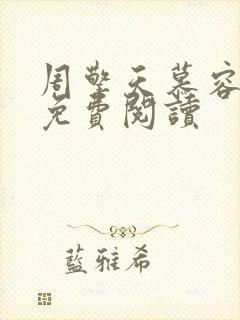 周擎天慕容
免費閱讀
藍雅希